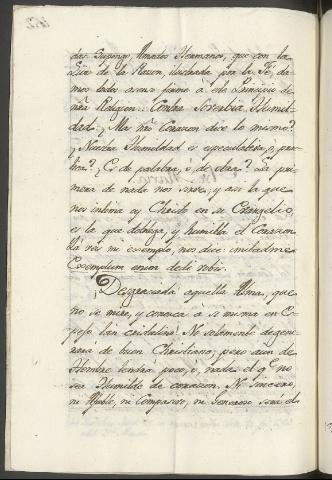 das. Supongo, Amados Hermanos, que con la
Luz de la Razon, ilustrada por la Fe, da-
mos todos asenso firme à este Principio de
ñra Religion: Contra Sobervia, Humil-
dad. ¿Mas ñro Corazon dice lo mismo?
¿Nuestra Humildad es especulativa, ò prac-
tica? ¿Es de palabra, ò de obra? La pri-
mera de nada nos sirve; y asi la que
nos intima oy Christo en su Evangelio,
es la que doblega, y humilla el Corazon.
Os doi mi exemplo, nos dice: imitadme.
Exemplum enim dedi vobis.
¡Desgraciada aquella Alma, que
no se mire, y conozca à si misma en Es-
pejo tan cristalino! No solamente degene-
rará de buen Christiano; pero aun de
Hombre tendrá poco, ò nada el q.e no
sea Humilde de corazon. Ni sincero,
ni Afable, ni Compasivo, ni Generoso será el